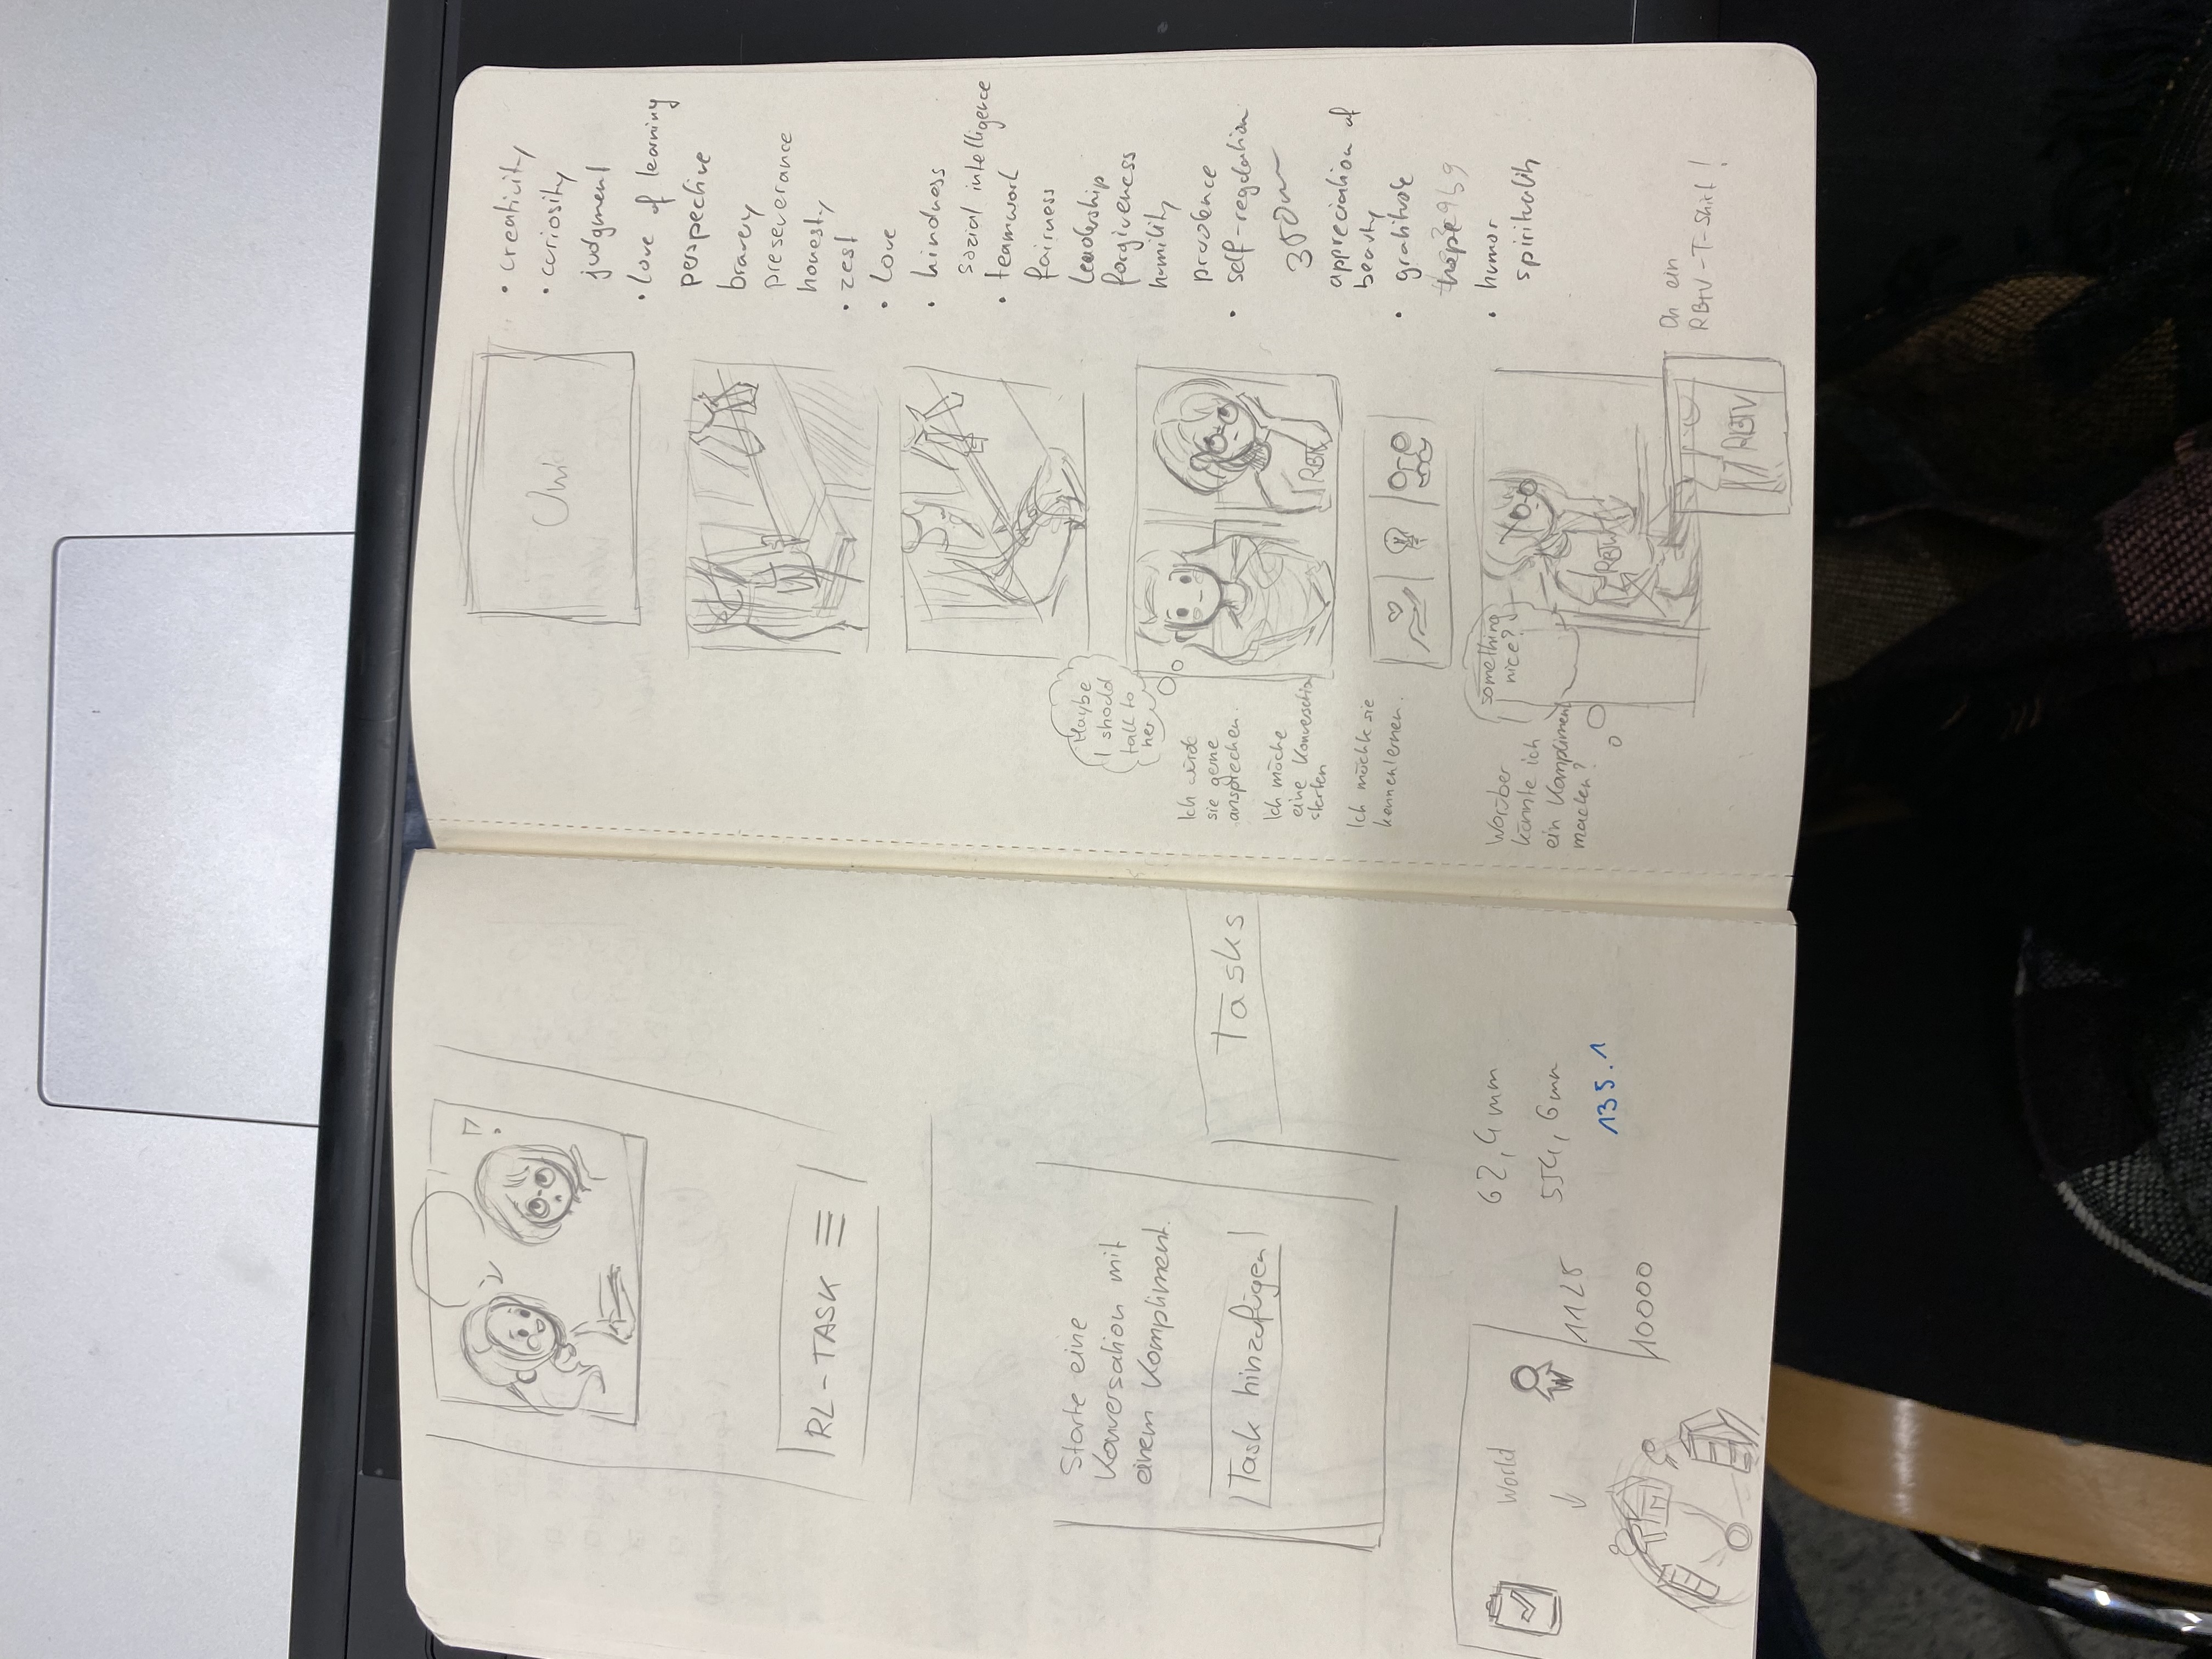 RL-TASK
Starte eine
Konversation mit
einem Kompliment.
Task hinzufügen
Tasks
World
1125
10000
62,4mm
554,6mm
135.1
Uni
Maybe
I should
talk to
her
Ich würde
sie gerne
ansprechen.
Ich möche
eine Konversation
starten
Ich möchte sie
kennenlernen.
RBTV
Worüber
könnte ich
ein Kompliment
machen?
something
nice?
RBTV
RBTV
Oh ein
RBTV-T-Shirt!
• creativity
• curiosity
judgment
• love of learning
perspective
bravery
preseverance
honesty
• zest
• love
• kindness
sozial intelligence
• teamwork
fairness
leadership
forgiveness
humility
prudence
• self-regulation
appreciation of
beauty
• gratitude
hope
• humor
spirituality